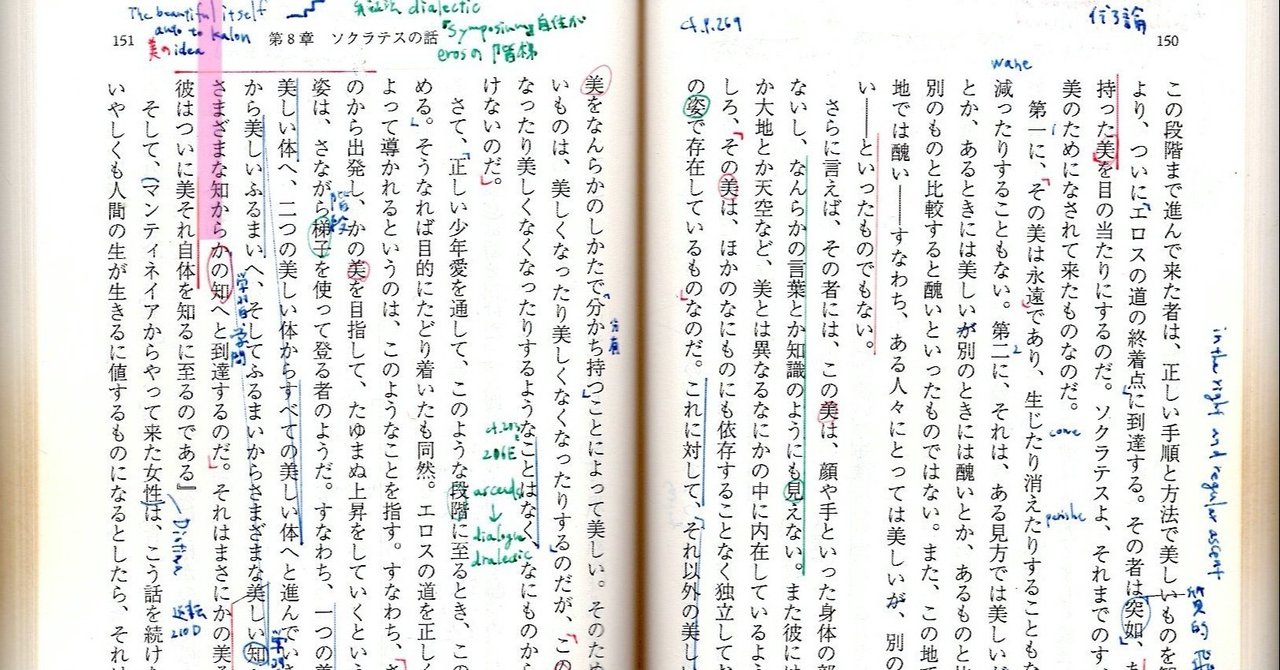 150
この段階まで進んで来た者は、正しい手順と方法で美しいものを
より、ついに「エロスの道の終着点」に到達する。その者は突如、
持った美を目の当たりにするのだ。ソクラテスよ、それまでのす
美のためになされて来たものなのだ。
第一に、「その美は永遠であり、生じたり消えたりすることも
減ったりすることもない。第二に、それは、ある見方では美しいが
とか、あるときには美しいが別のときには醜いとか、あるものと比
別のものと比較すると醜いといったものではない。また、この地で
地では醜い――すなわち、ある人々にとっては美しいが、別の
い――といったものでもない。
さらに言えば、その者には、この美は、顔や手といった身体の部
ないし、なんらかの言葉とか知識のようにも見えない。また彼には
か大地とか天空など、美とは異なるなにかの中に内在しているよう
しろ、「その美は、ほかのなにものにも依存することなく独立して
の姿で存在しているもの」なのだ。これに対して、「それ以外の美しい
151
第8章 ソクラテスの話
美をなんらかのしかたで「分かち持つ」ことによって美しい。そのため
いものは、美しくなったり美しくなくなったりする」のだが、「この
なったり美しくなくなったりするようなことはなく、なにものから
けないのだ」。
さて、「正しい少年愛を通して、このような段階に至るとき、この
める。」そうなれば目的にたどり着いたも同然。エロスの道を正しく
よって導かれるというのは、このようなことを指す。すなわち、
のから出発し、かの美を目指して、たゆまぬ上昇をしていくという
姿は、さながら梯子を使って登る者のようだ。すなわち、一つの美
美しい体へ、二つの美しい体からすべての美しい体へと進んでい
から美しいふるまいへ、そしてふるまいからさまざまな美しい知
さまざまな知からかの知へと到達するのだ」。それはまさにかの美
彼はついに美それ自体を知るに至るのである』
そして、（マンティネイアからやって来た女性は、こう話を続け
いやしくも人間の生が生きるに値するものになるとしたら、それは
The beautiful itself
auto to kalon
美のidea
dialectic
"Symposium"
erosの階梯
cf. P.269
wahe
come
in the right and regular ascent
分有
階段
206E
ascends
↓
dialogue
dialectic
学問
210D